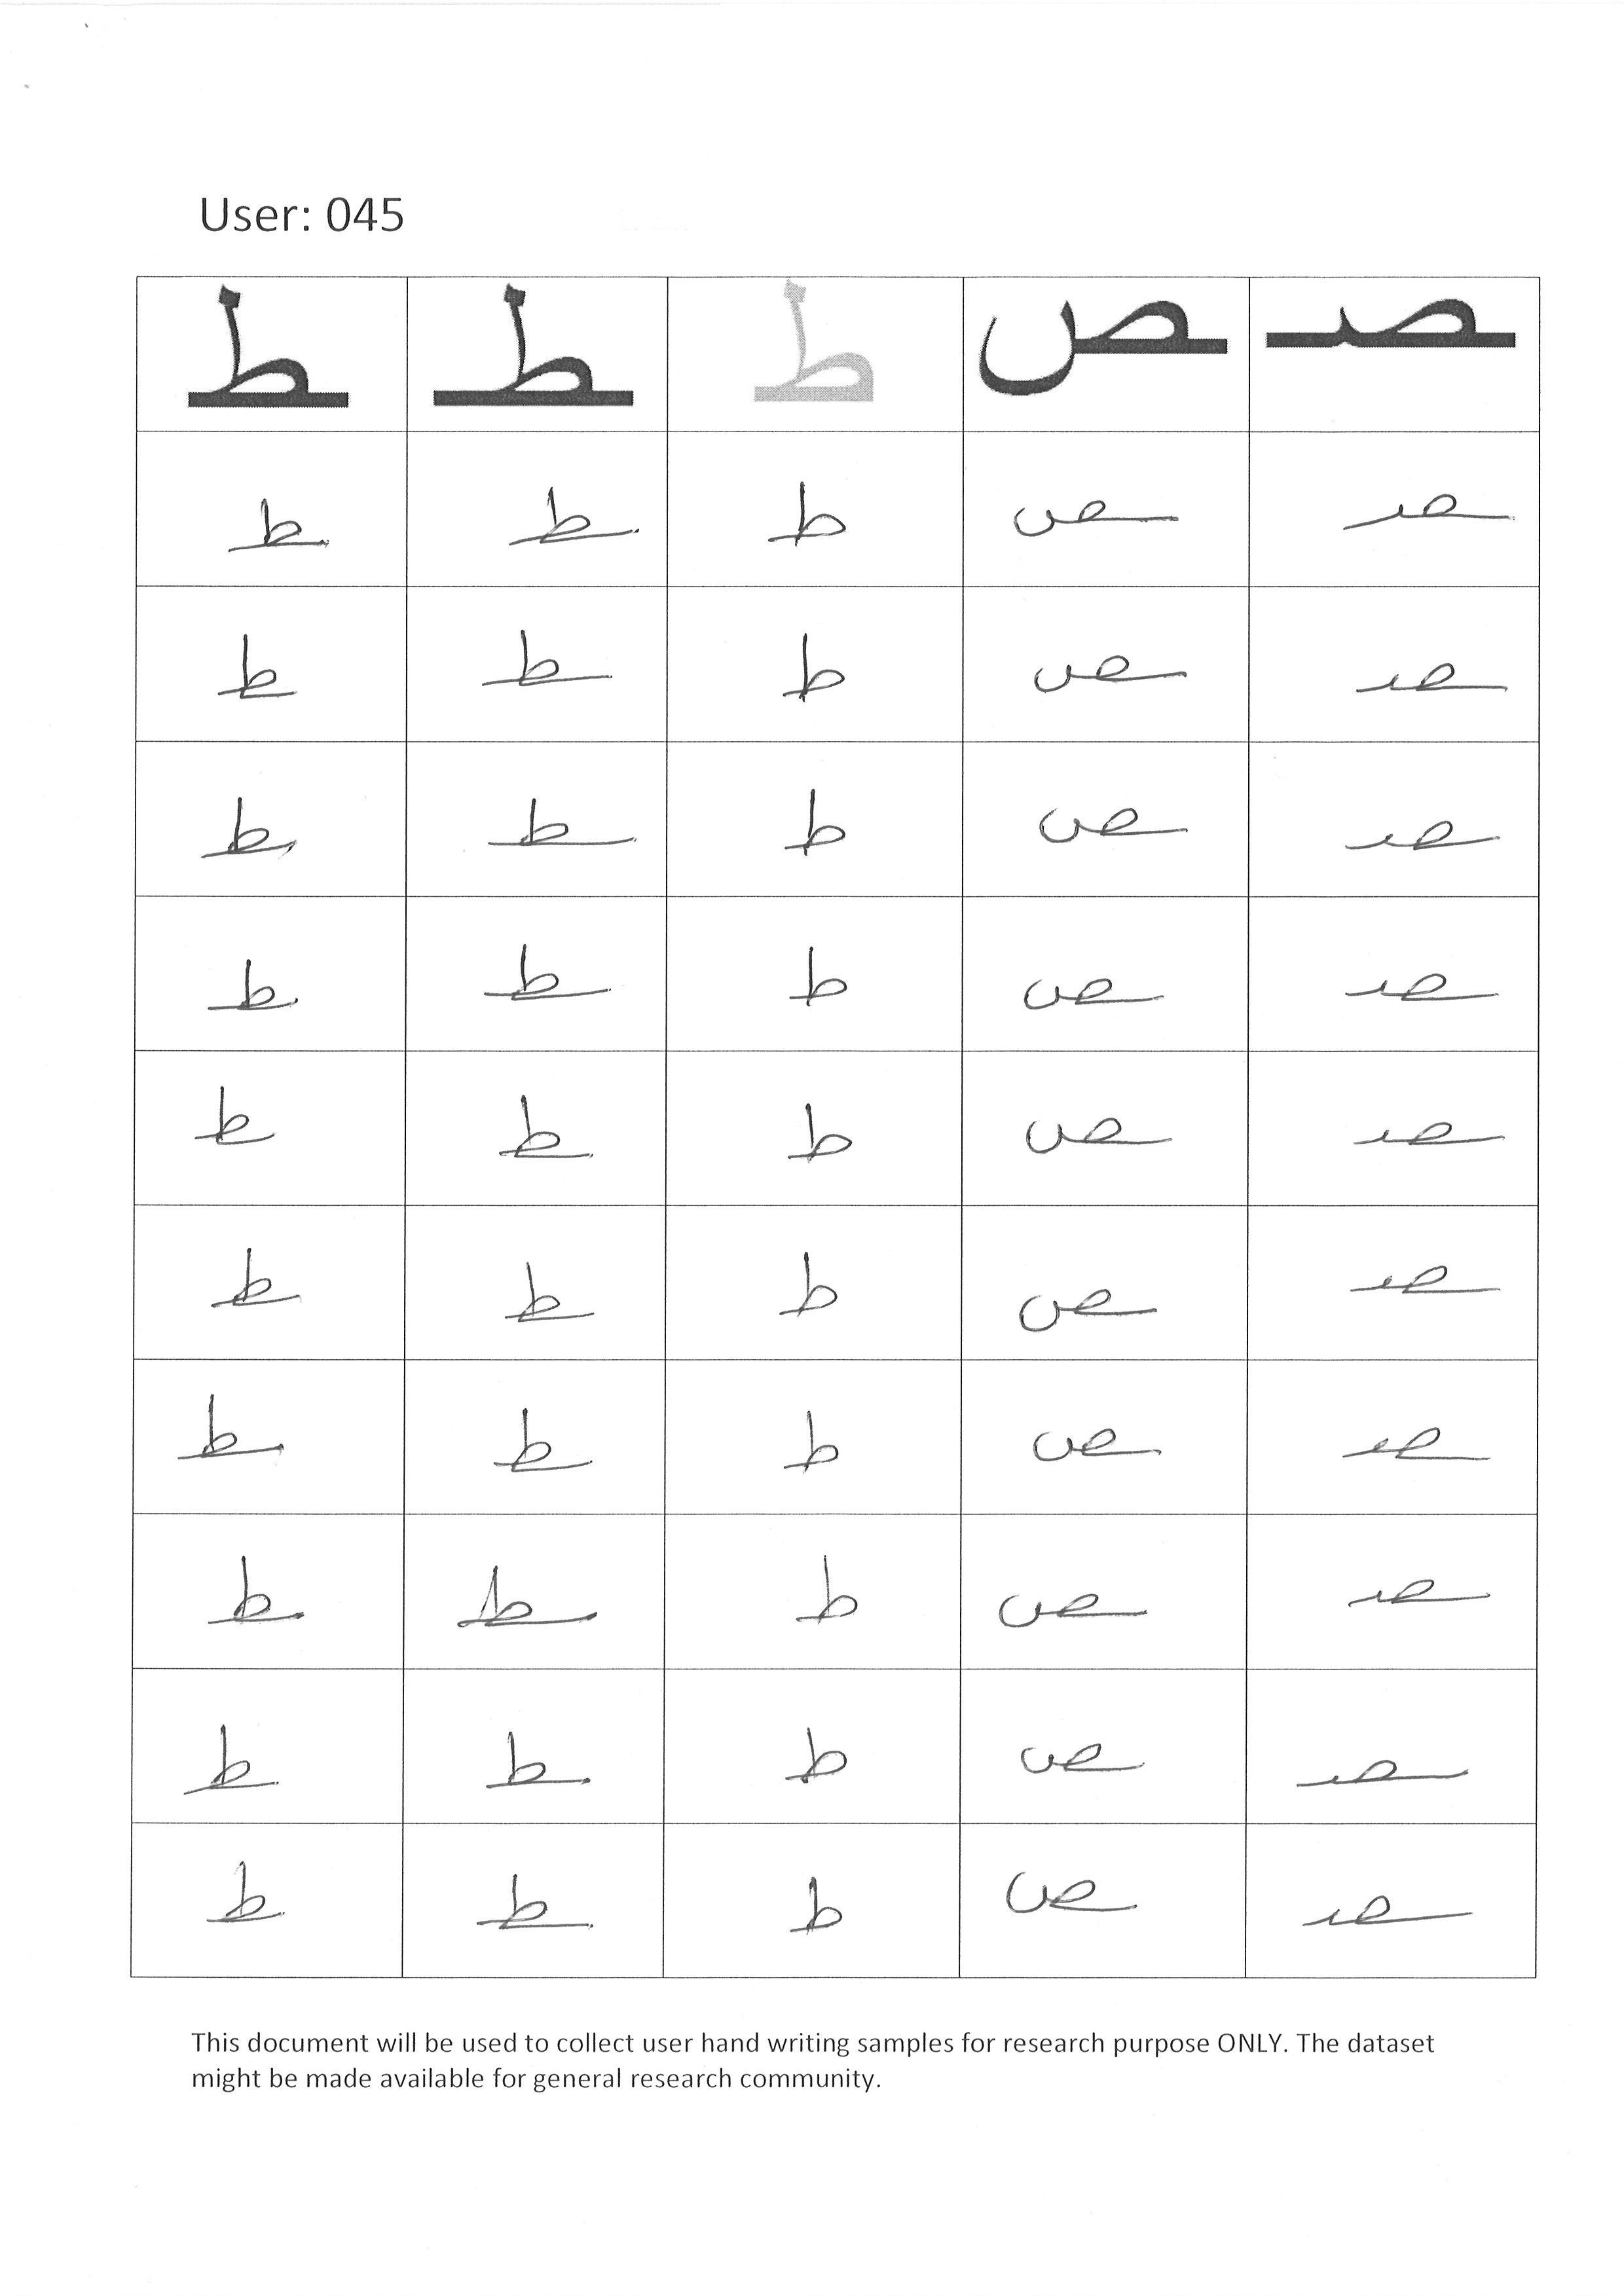 User: 045
ـطـ ـطـ ط ـص ـصـ
ـطـ ـطـ ط ـص ـصـ
ـطـ ـطـ ط ـص ـصـ
ـطـ ـطـ ط ـص ـصـ
ـطـ ـطـ ط ـص ـصـ
ـطـ ـطـ ط ـص ـصـ
ـطـ ـطـ ط ـص ـصـ
ـطـ ـطـ ط ـص ـصـ
ـطـ ـطـ ط ـص ـصـ
ـطـ ـطـ ط ـص ـصـ
ـطـ ـطـ ط ـص ـصـ
This document will be used to collect user hand writing samples for research purpose ONLY. The dataset
might be made available for general research community.